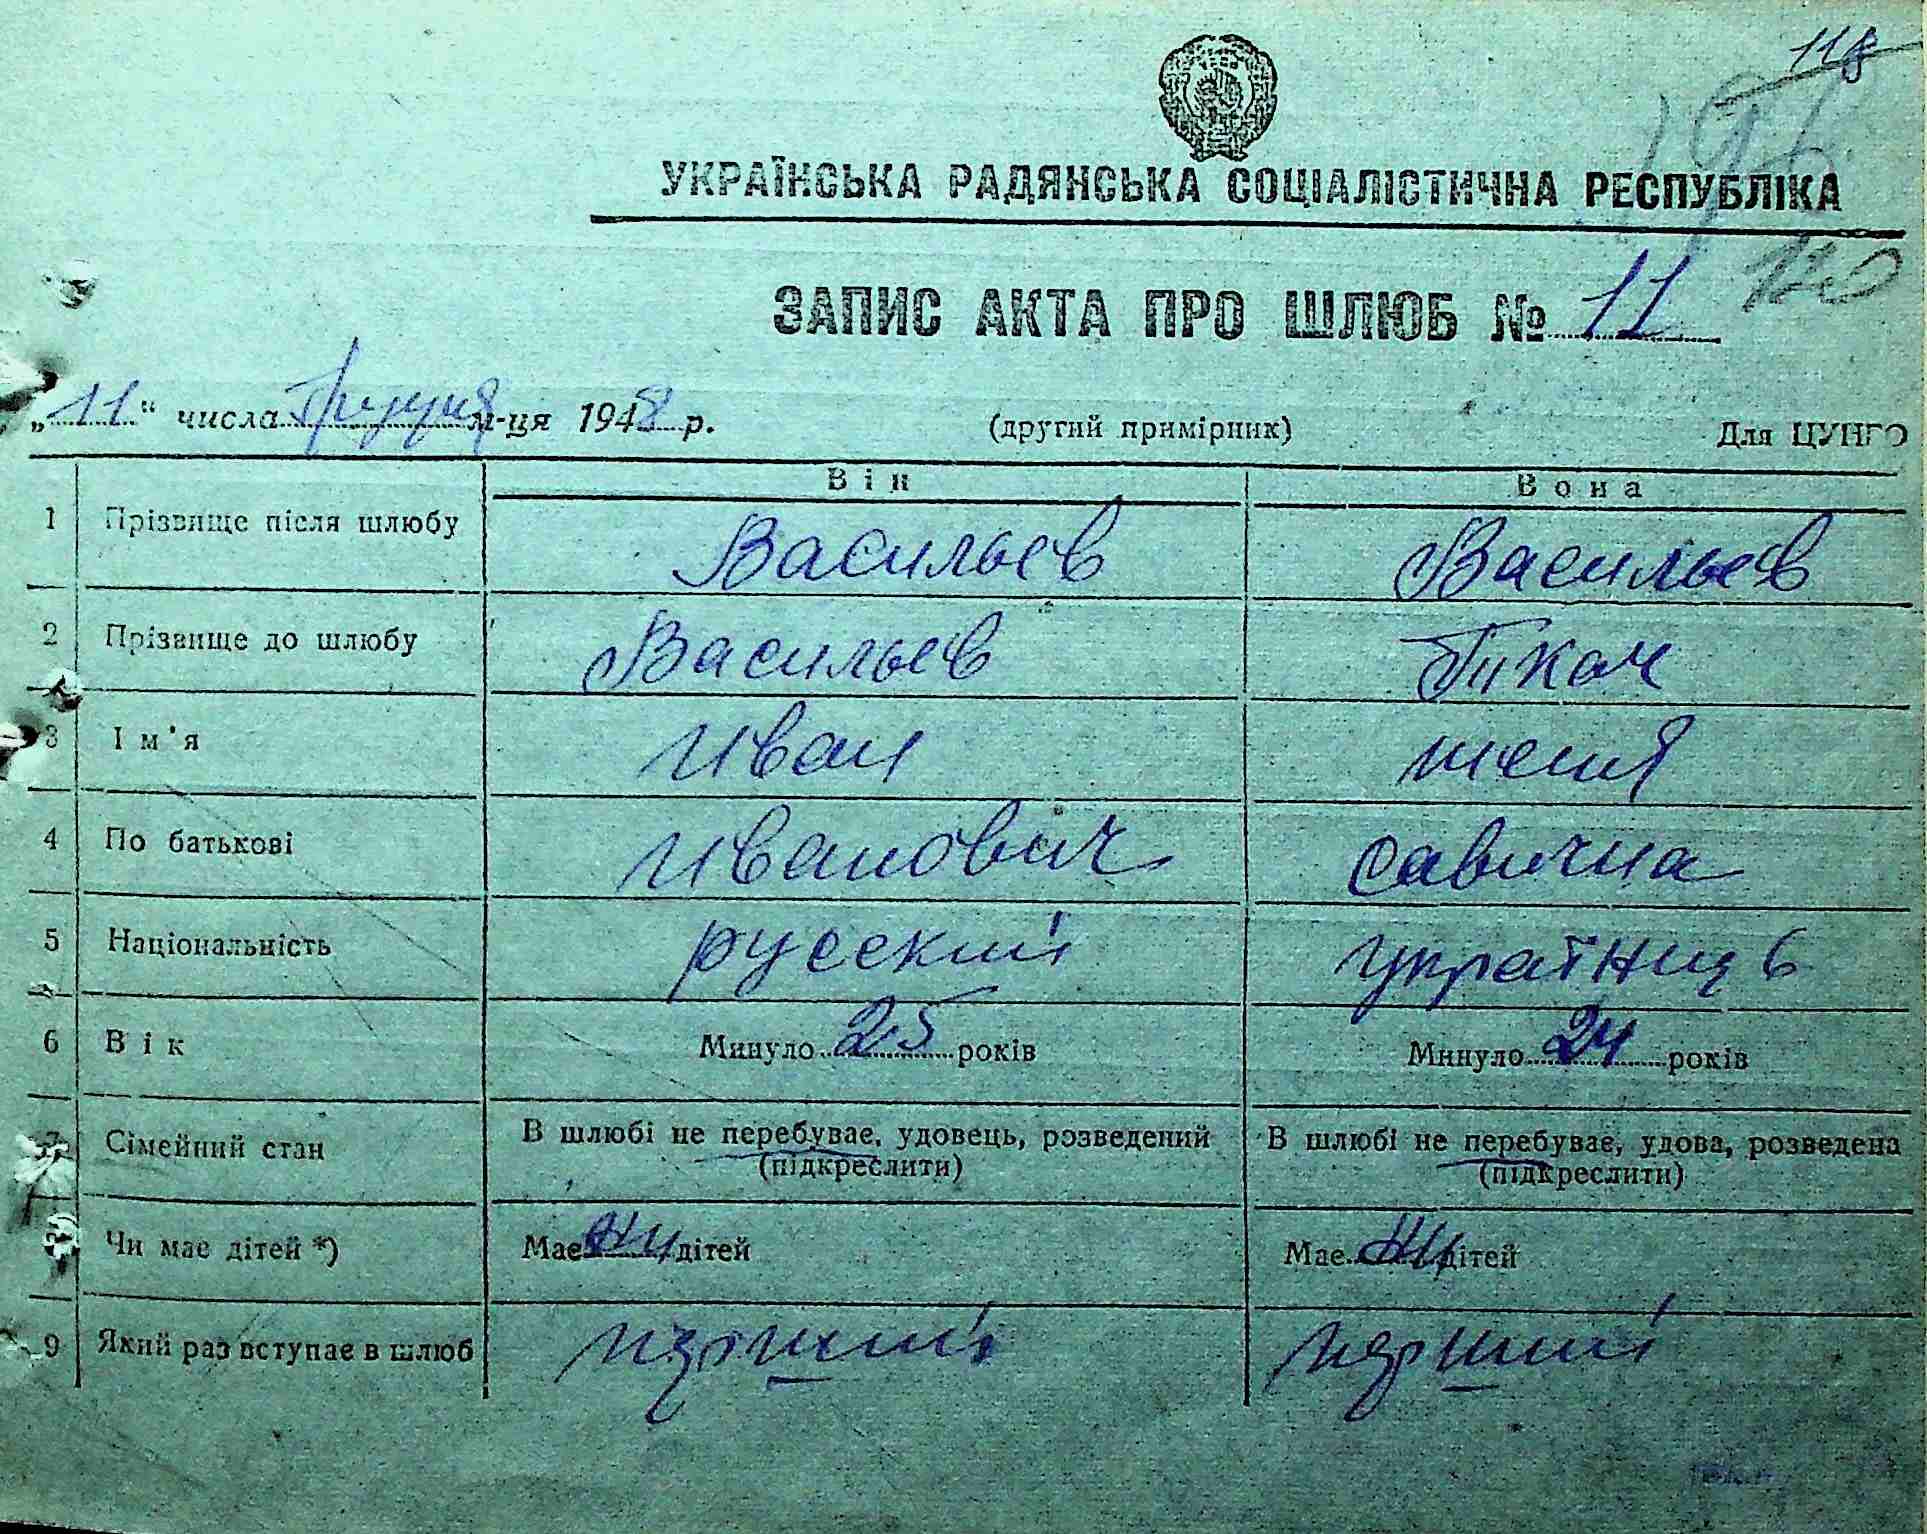 118
120
УКРАЇНСЬКА РАДЯНСЬКА СОЦІАЛІСТИЧНА РЕСПУБЛІКА
ЗАПИС АКТА ПРО ШЛЮБ № 11
„11“ числа Грудня м-ця 1948 р. (другий примірник) Для ЦУНГО
Він Вона
1 Прізвище після шлюбу Васильев Васильев
2 Прізвище до шлюбу Васильев Ткач
3 Ім'я Иван женя
4 По батькові Иванович савична
5 Національність русский українць
6 Вік Минуло 25 років Минуло 24 років
7 Сімейний стан В шлюбі не перебуває, удовець, розведений В шлюбі не перебуває, удова, розведена
(підкреслити) (підкреслити)
Чи має дітей *) Має дітей Має дітей
9 Який раз вступає в шлюб перший перший